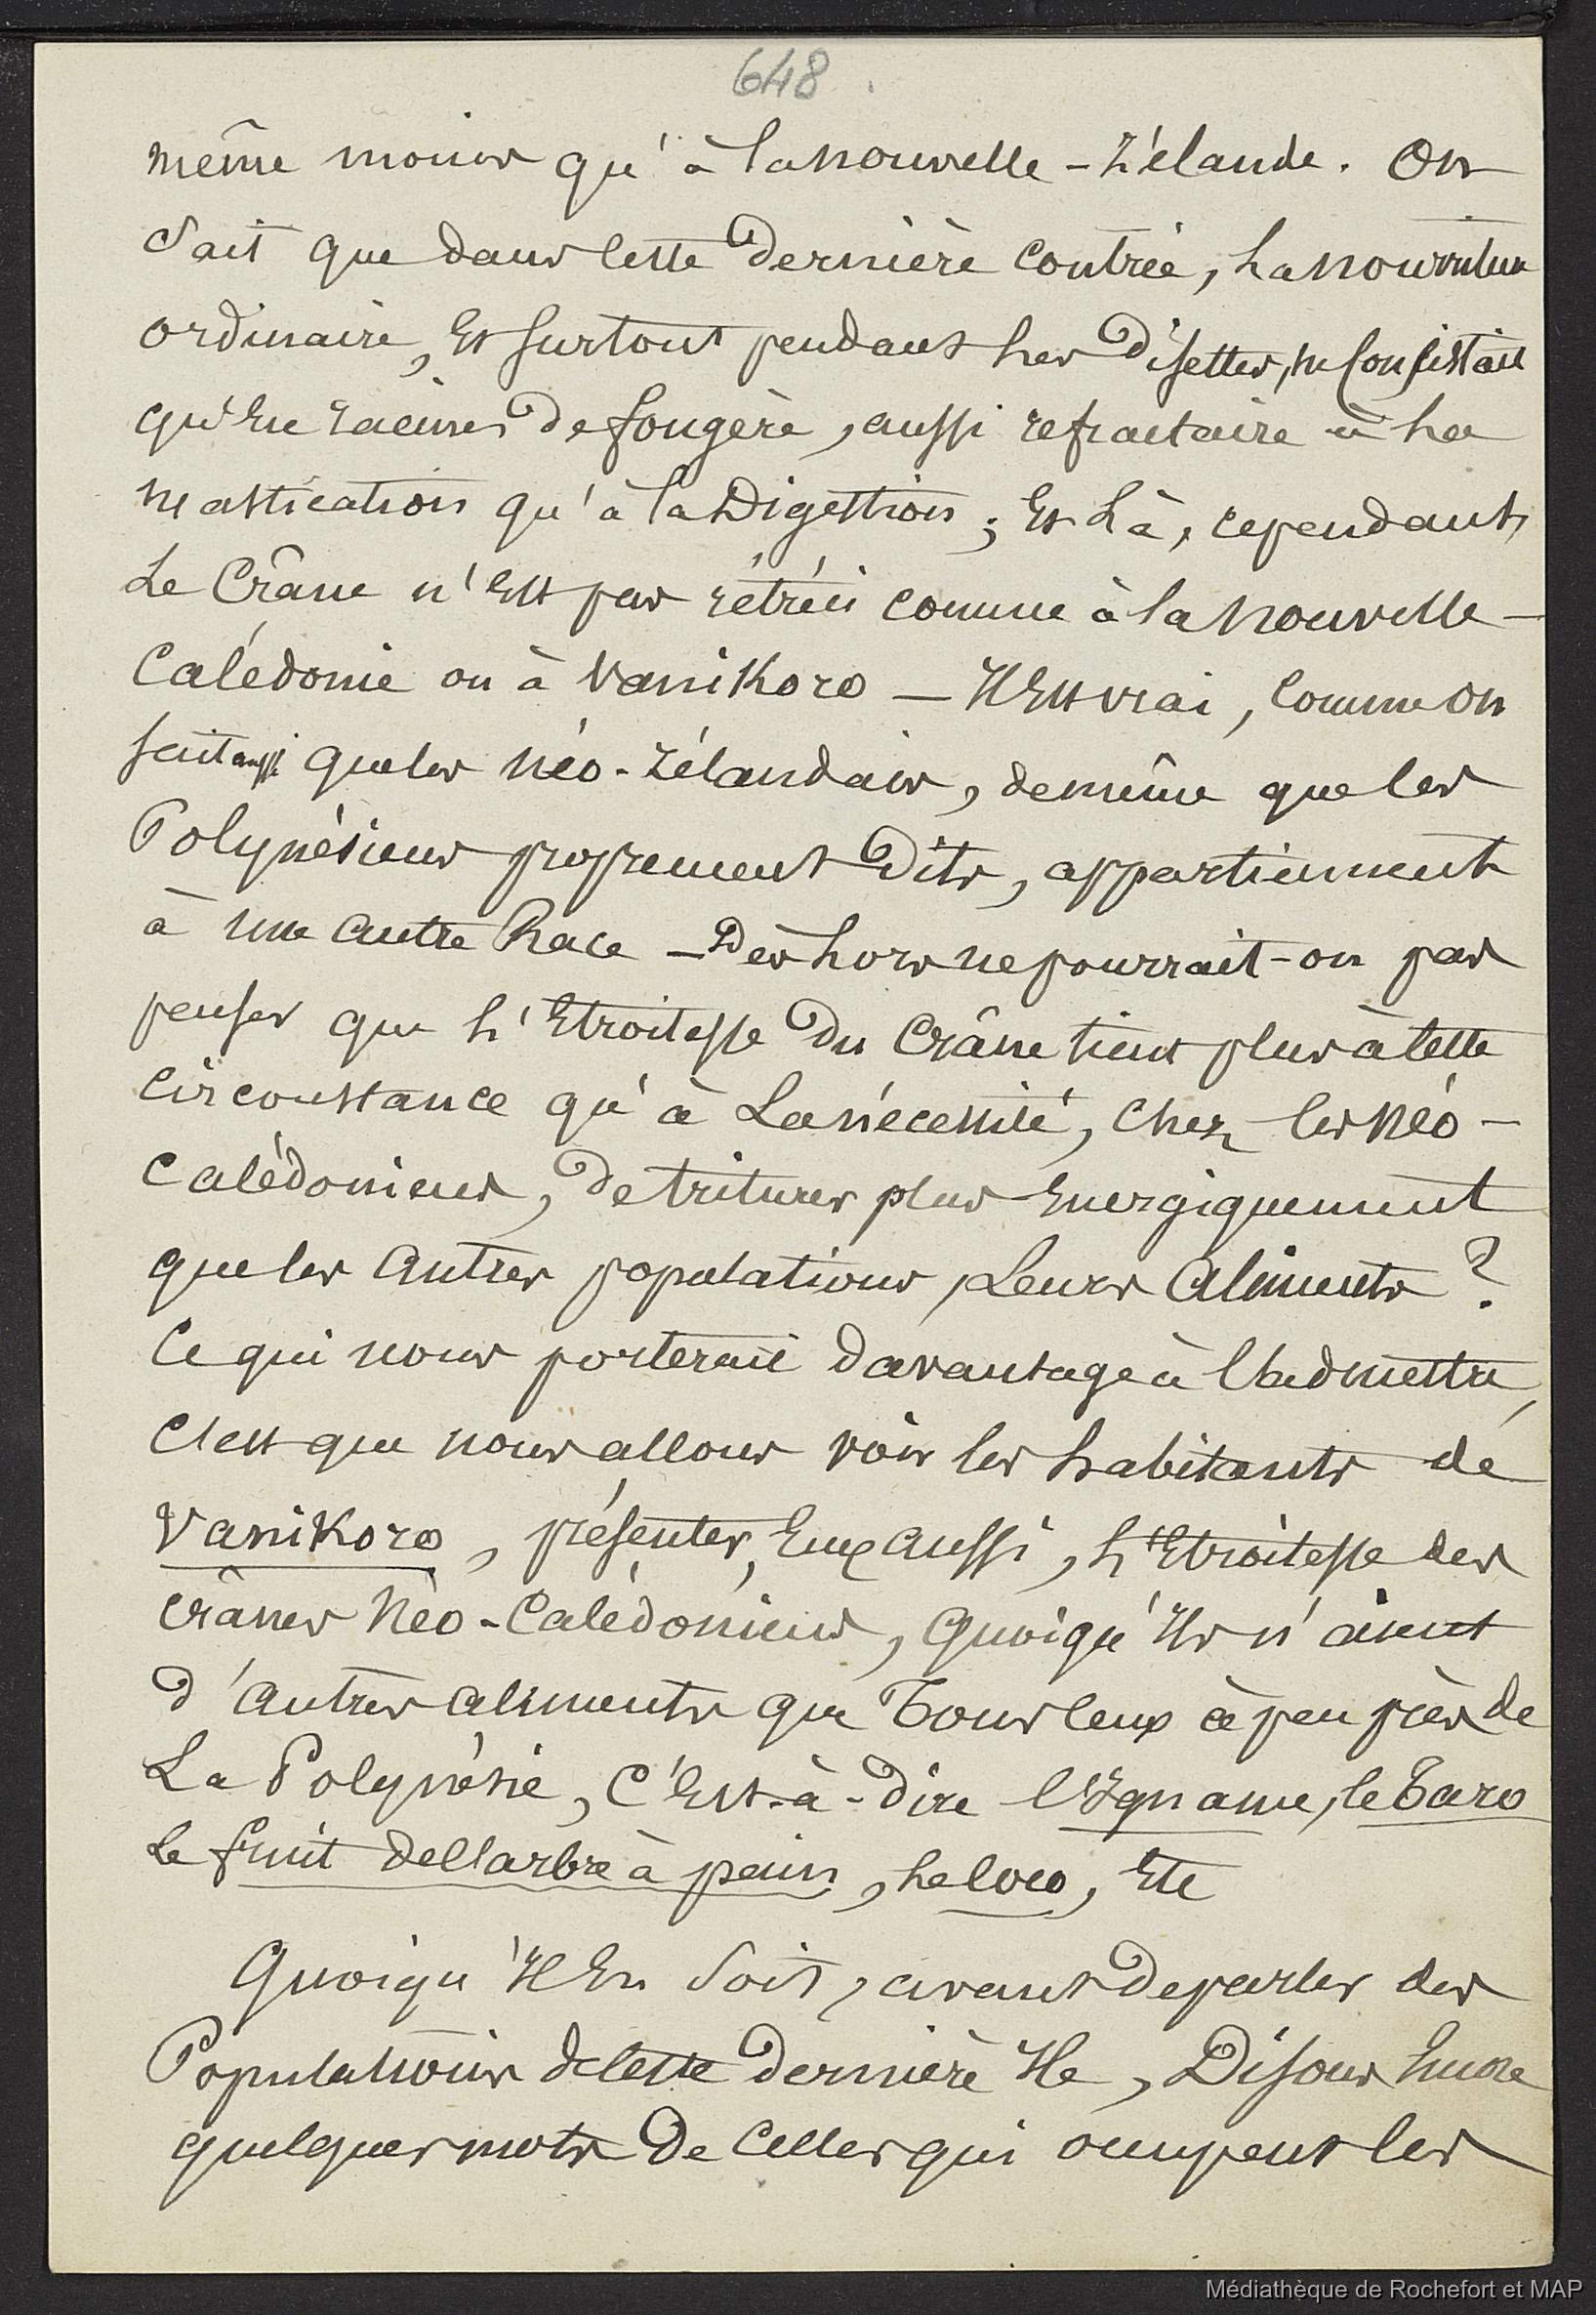 648.
même moins qu'à la nouvelle-Zélande. On
sait que dans cette dernière contrée, la nourriture
ordinaire, et surtout pendant les disettes, ne consistait
qu'en racines de fougère, aussi réfractaire à la
mastication qu'à la Digestion ; et là, cependant,
Le Crâne n'est pas rétréci comme à la nouvelle-
Calédonie ou à Vanikoro — Il est vrai, comme on
sait aussi que les néo-Zélandais, de même que les
Polynésiens proprement dits, appartiennent
à une autre Race — Dès lors ne pourrait-on pas
penser que l'Etroitesse du Crâne tient plus à cette
circonstance qu'à La nécessité, chez les néo-
Calédoniens, de triturer plus énergiquement
que les autres populations, Leurs Aliments ?
Ce qui nous porterait davantage à l'admettre,
c'est que nous allons voir les habitants de
Vanikoro, présenter, Eux aussi, l'Etroitesse des
crânes Néo-Calédoniens, quoiqu'ils n'aient
d'autres aliments que Tous ceux à peu près de
La Polynésie, c'Est-à-dire l'Igname, le Taro
Le fruit de l'arbre à pain, le coco, Etc
Quoiqu'il En soit, avant de parler des
Populations de cette dernière Ile, Disons Encore
quelques mots de Celles qui occupent les
Médiathèque de Rochefort et MAP